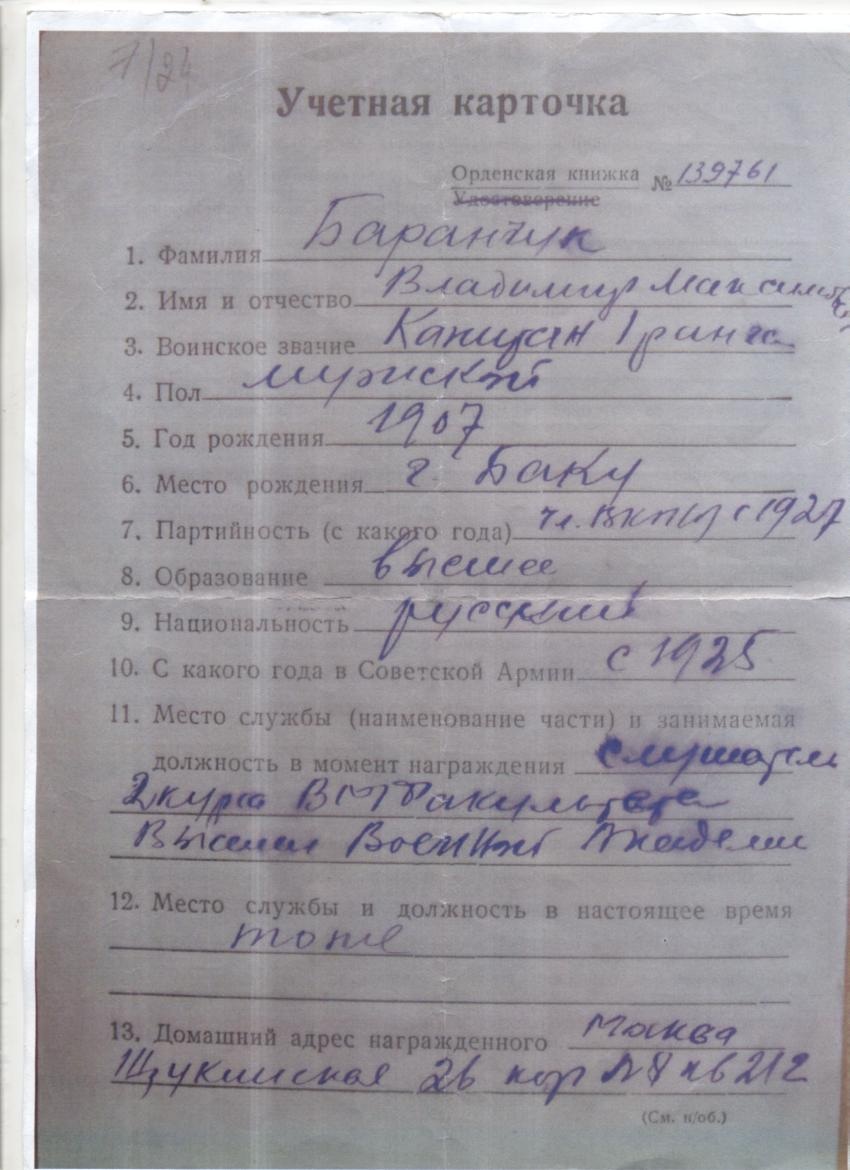 7/24
Учетная карточка
Орденская книжка № 139761
Удостоверение
1. Фамилия Баранчук
2. Имя и отчество Владимир Максимов
3. Воинское звание Капитан 1 ранга
4. Пол мужской
5. Год рождения 1907
6. Место рождения г. Баку
7. Партийность (с какого года) чл. ВКП(б) с 1927
8. Образование высшее
9. Национальность русский
10. С какого года в Советской Армии с 1925
11. Место службы (наименование части) и занимаемая
должность в момент награждения слушатель
2 курса ВМ Факультета
Высшей Военной Академии
12. Место службы и должность в настоящее время
тоже
13. Домашний адрес награжденного Москва
Щукинская 26 кор № 8 кв 212
(См. н/об.)